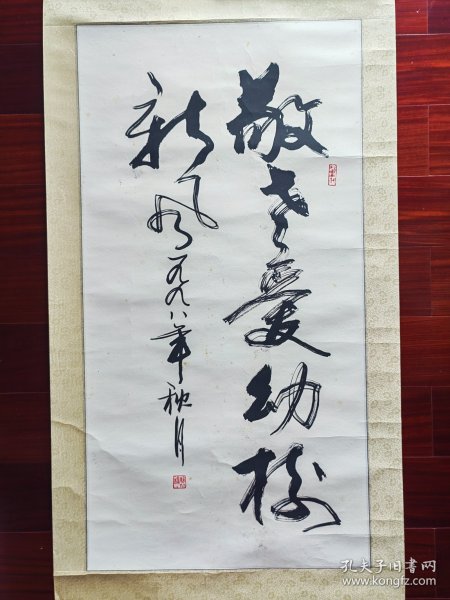 敬老爱幼树
新风 一九九八年秋月
孔夫子旧书网
www.kongfz.com